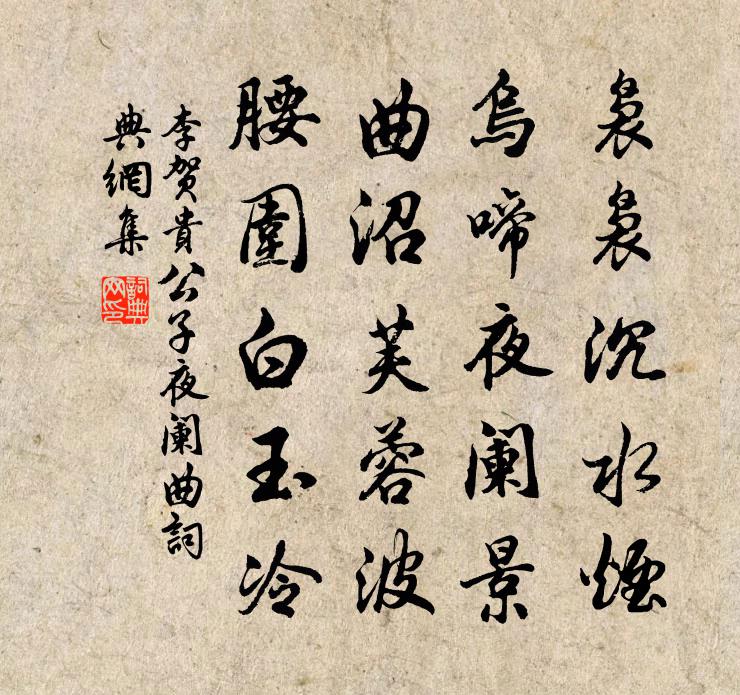 裊裊沉水煙
烏啼夜闌景
曲沼芙蓉波
腰圍白玉冷
李賀貴公子夜闌曲詞
典網集
詞典
网印